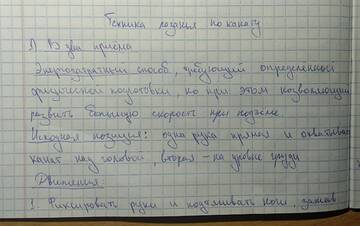 Техника лазанья по канату
1) В два приема
Энергозатратный способ, требующий определенной
физической подготовки, но при этом позволяющий
развить большую скорость при подъёме.
Исходная позиция: одна рука прямая и охватывает
канат над головой, вторая - на уровне груди
Движения:
1. Фиксировать руки и подтягивать ноги, зажав